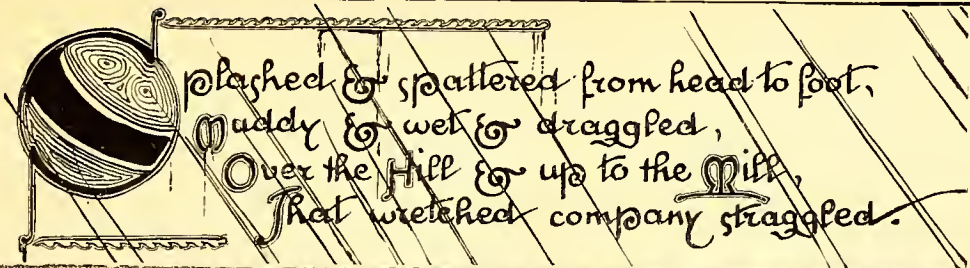 Splashed & spattered from head to foot,
Muddy & wet & draggled,
Over the Hill & up to the Mill,
That wretched company straggled.